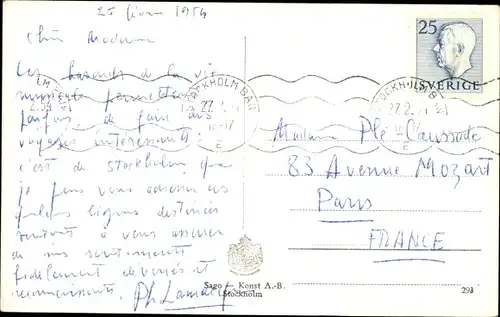 25 février 1954
Chère Madame
Les hasards de la vie
permettent
parfois de faire des
voyages intéressants :
c'est de Stockholm que
je peux vous adresser ces
quelques lignes destinées
surtout à vous assurer
de mes sentiments
fidèlement dévoués et
reconnaissants.
25
SVERIGE
STOCKHOLM BAN
27.2.
Madame
83 Avenue Mozart
Paris
FRANCE
Sago Konst A.-B.
Stockholm
293